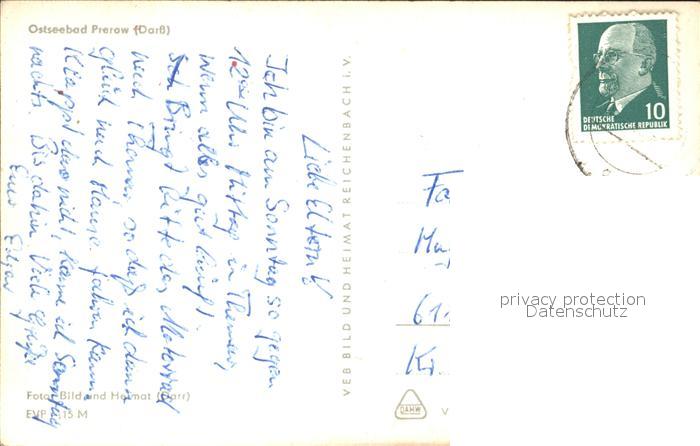 Ostseebad Prerow (Darß)
Liebe Eltern!
Ich bin am Sonntag so gegen
12 Uhr Mittag in Themar,
wenn alles gut hingt.
Bringt bitte das Motorrad
nach Themar, so daß ich dann
gleich nach Hause fahren kann.
Klappt das nicht, komme ich Sonntag
nachts. Bis dahin Viele Grüße
Euer Edgar
Foto: Bild und Heimat (Darr)
EVP 0,15 M
VEB BILD UND HEIMAT REICHENBACH I. V.
DEUTSCHE
DEMOKRATISCHE REPUBLIK
10
61
Kr.
DAHW
V
privacy protection
Datenschutz